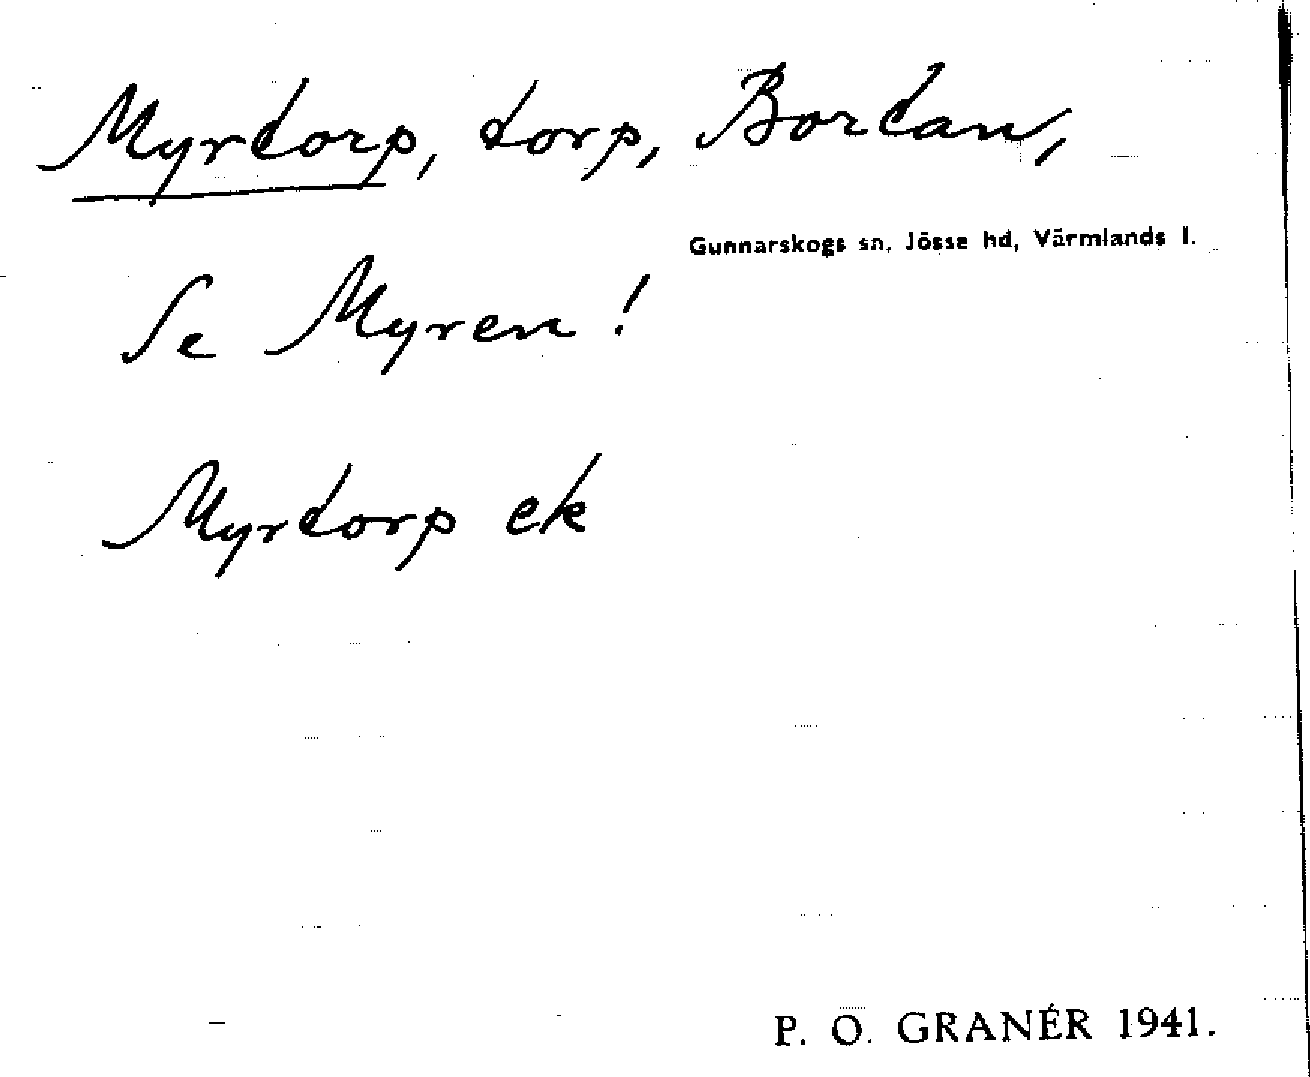 Myrtorp, torp, Bortan,
Gunnarskogs sn, Jösse hd, Värmlands l.
Se Myren!
Myrtorp ek
P. O. GRANÉR 1941.